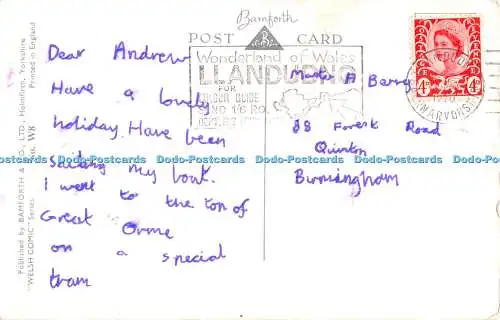 Bamforth
POST CARD
Dear Andrew
Have a lovely
holiday. Have been
sailing my boat.
I went to the top of
Great Orme
on a special
tram
Wonderland of Wales
LLANDUDNO
FOR
COLOUR GUIDE
SEND 1/6 P.O.
Master A Barry
88 Forest Road
Quinton
Birmingham
4D 4D
Published by BAMFORTH & CO., LTD., Holmfirth, Yorkshire
"WELSH COMIC" Series No. W8
Printed in England
Dodo-Postcards Dodo-Postcards Dodo-Postcards Dodo-Postcards Dodo-Postcards Dodo-Postcards